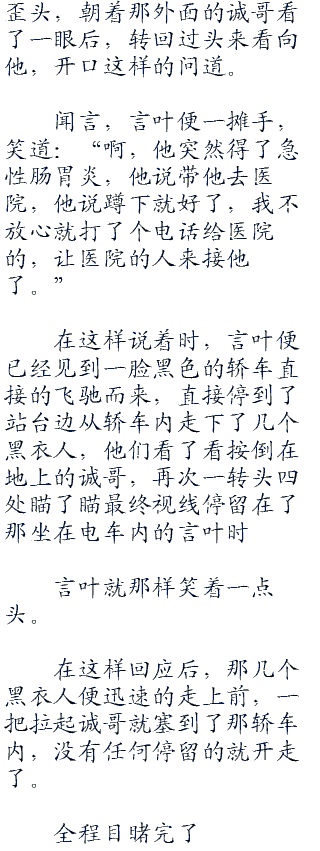 歪头，朝着那外面的诚哥看
了一眼后，转回过头来看向
他，开口这样的问道。
闻言，言叶便一摊手，
笑道：“啊，他突然得了急
性肠胃炎，他说带他去医
院，他说蹲下就好了，我不
放心就打了个电话给医院
的，让医院的人来接他
了。”
在这样说着时，言叶便
已经见到一脸黑色的轿车直
接的飞驰而来，直接停到了
站台边从轿车内走下了几个
黑衣人，他们看了看按倒在
地上的诚哥，再次一转头四
处瞄了瞄最终视线停留在了
那坐在电车内的言叶时
言叶就那样笑着一点
头。
在这样回应后，那几个
黑衣人便迅速的走上前，一
把拉起诚哥就塞到了那轿车
内，没有任何停留的就开走
了。
全程目睹完了